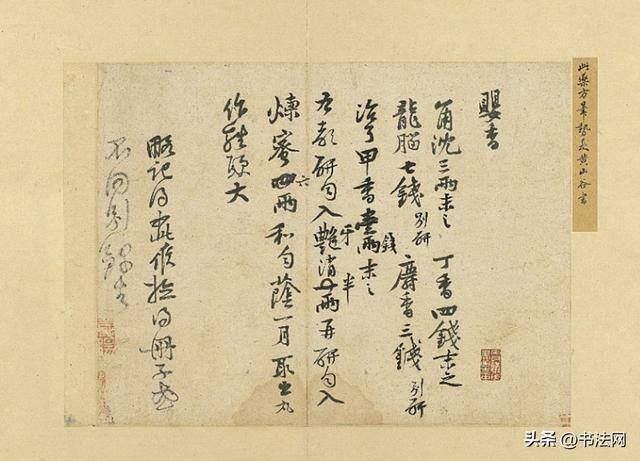 此藥方筆勢是黃山谷書
嬰香
角沈三兩末之 丁香四錢末之
龍腦七錢別研 麝香三錢別研
治了甲香壹兩錢末之
右都研勻入艷牙消半兩再研勻入
煉蜜四六兩和勻蔭一月取出丸
作雞頭大
略記得如此候檢得冊子或
不同別錄去
头条 @书法网